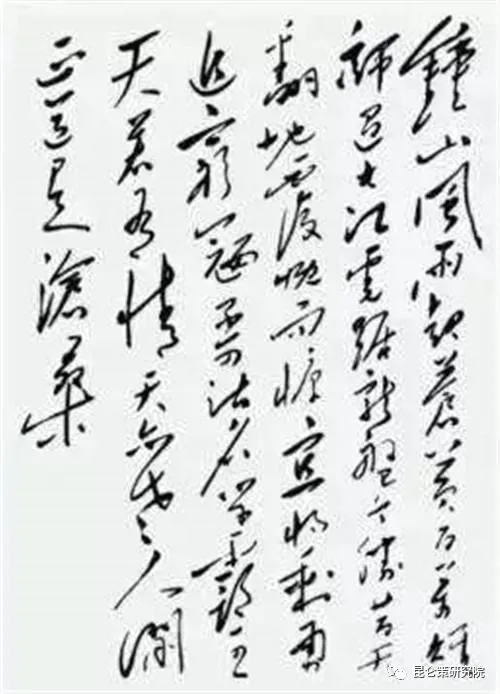 鐘山風雨起蒼黃百万雄
師過大江虎踞龍盤今勝昔天
翻地覆慨而慷宜將剩勇
追窮寇不可沽名学霸王
天若有情天亦老人間
正道是滄桑
昆仑策研究院